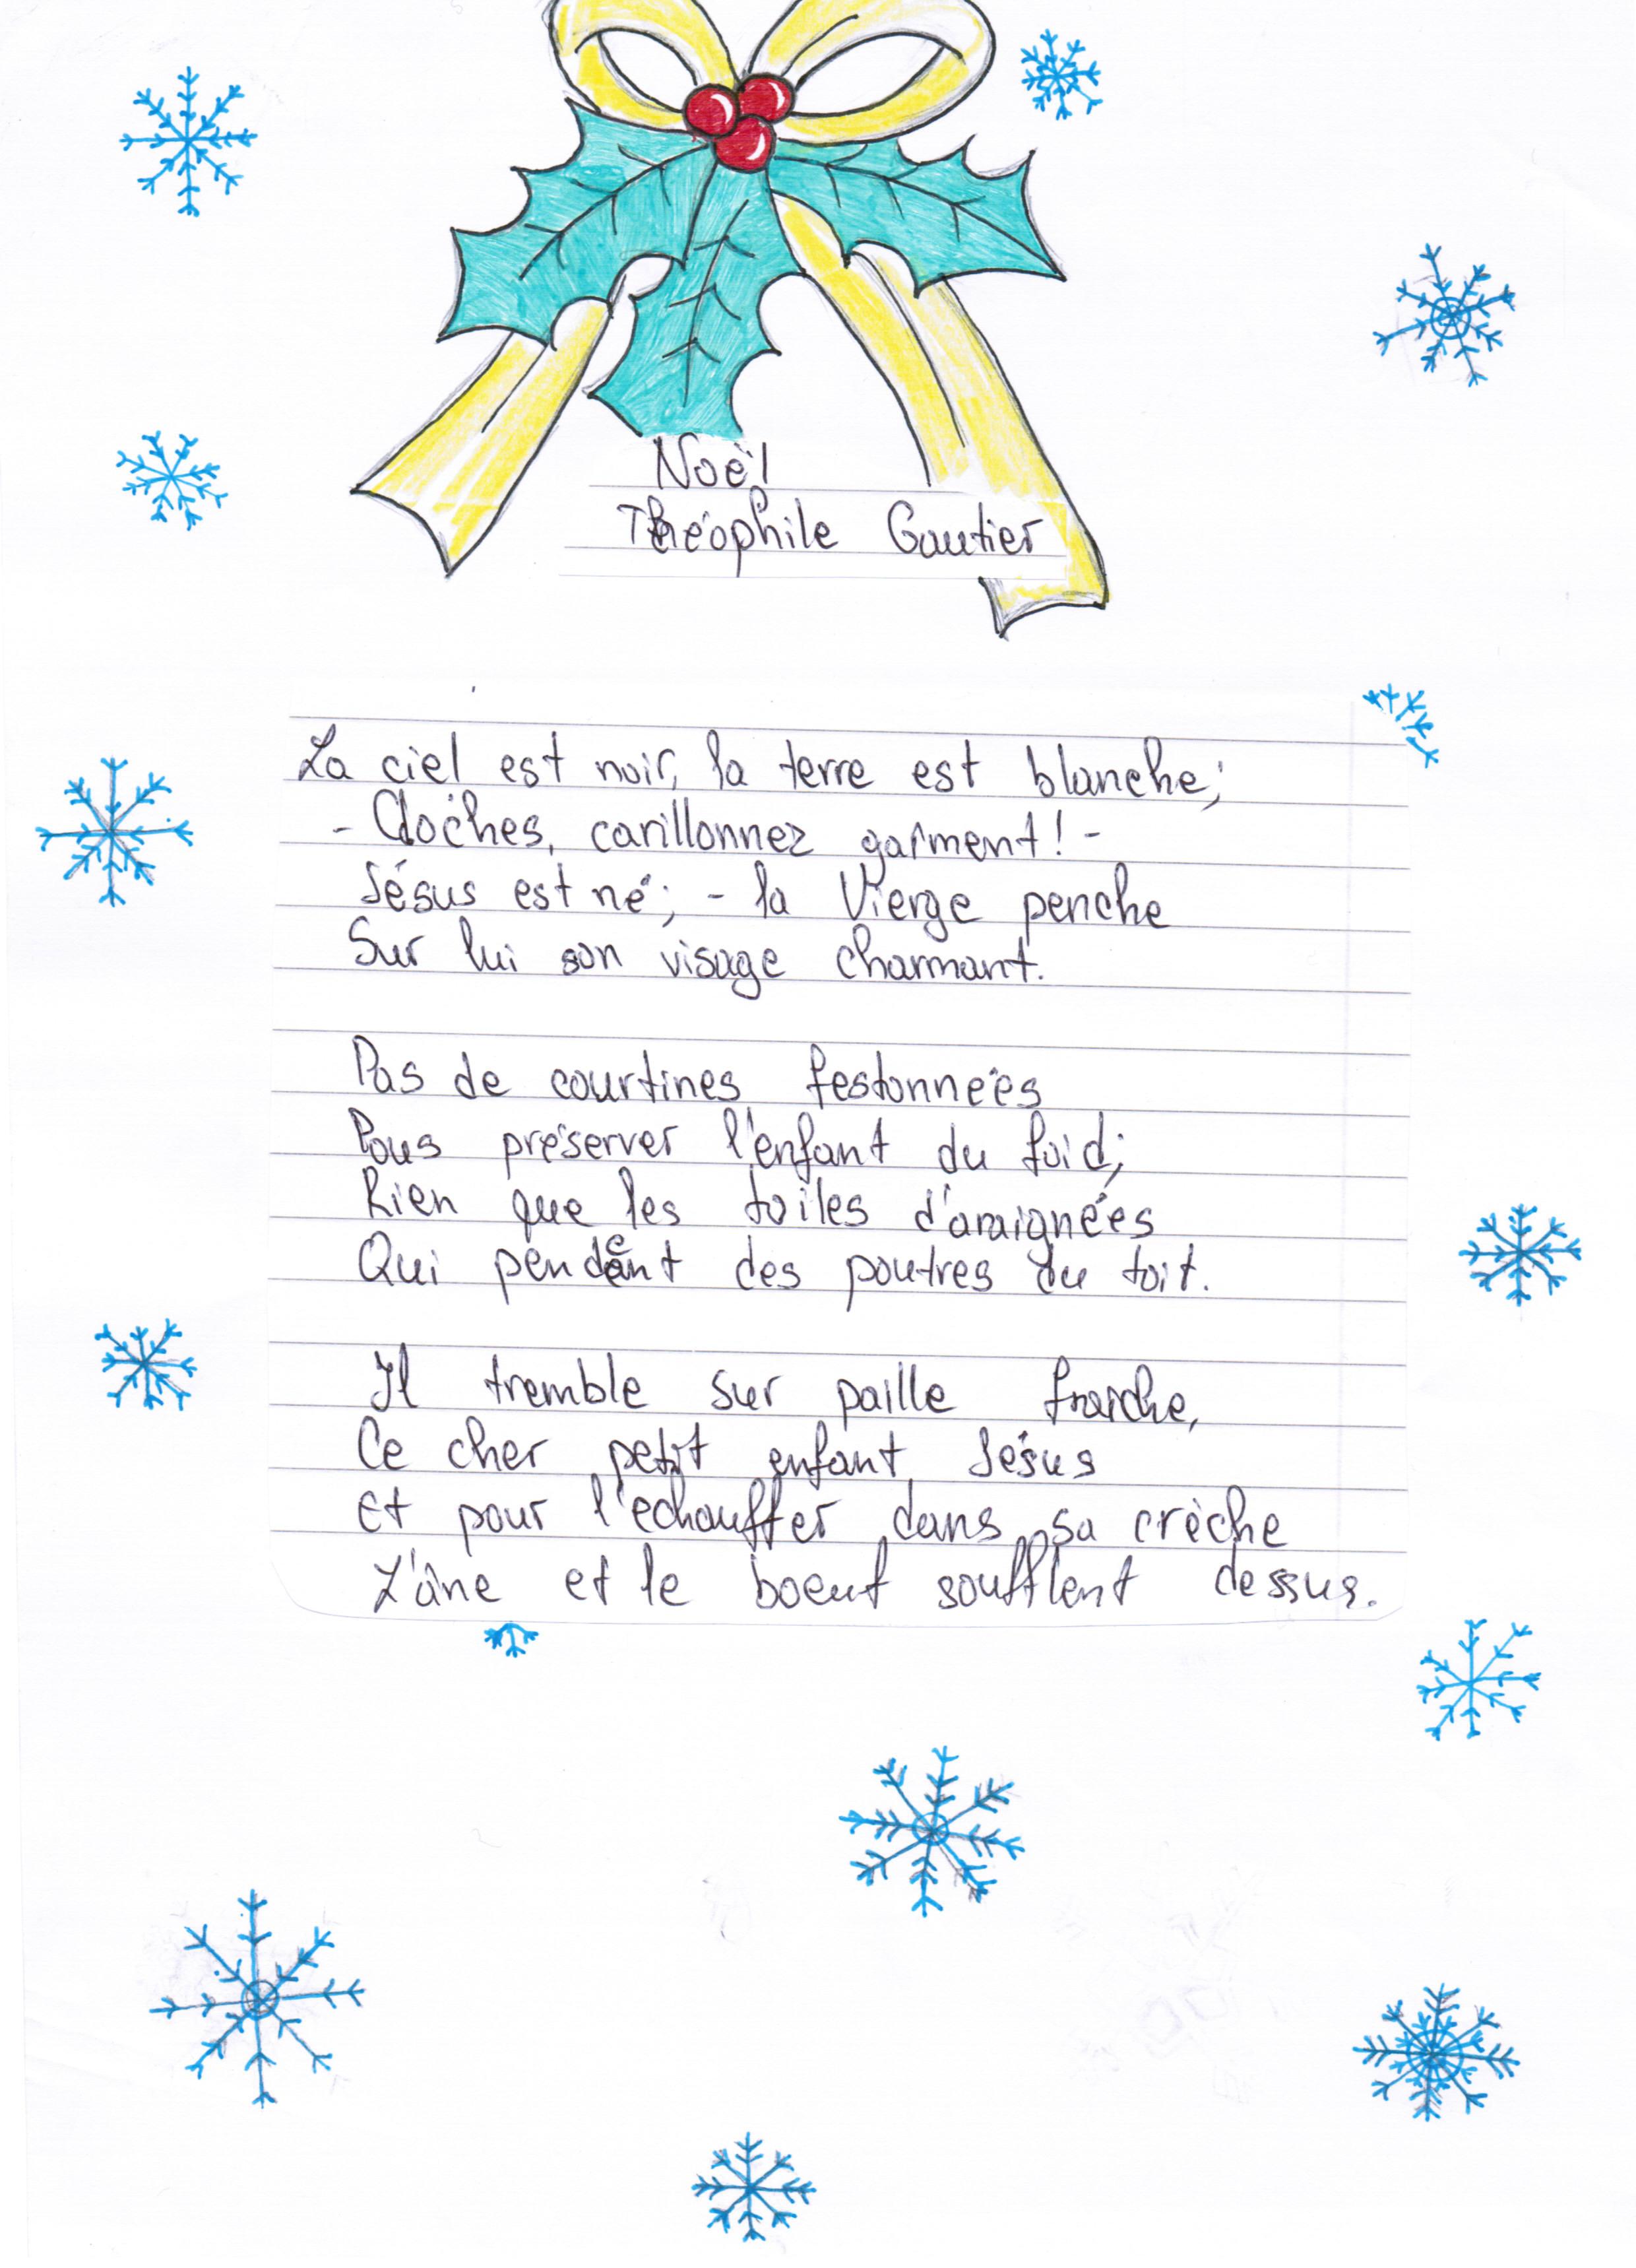 Noël
Théophile Gautier
La ciel est noir, la terre est blanche;
- Cloches, carillonnez gaîment! -
Jésus est né; - la Vierge penche
Sur lui son visage charmant.
Pas de courtines festonnées
Pous préserver l'enfant du foid;
Rien que les toiles d'araignées
Qui pendent des poutres du toit.
Il tremble sur paille fraîche,
Ce cher petit enfant Jésus
Et pour l'echauffer dans sa crèche
L'âne et le boeuf soufflent dessus.